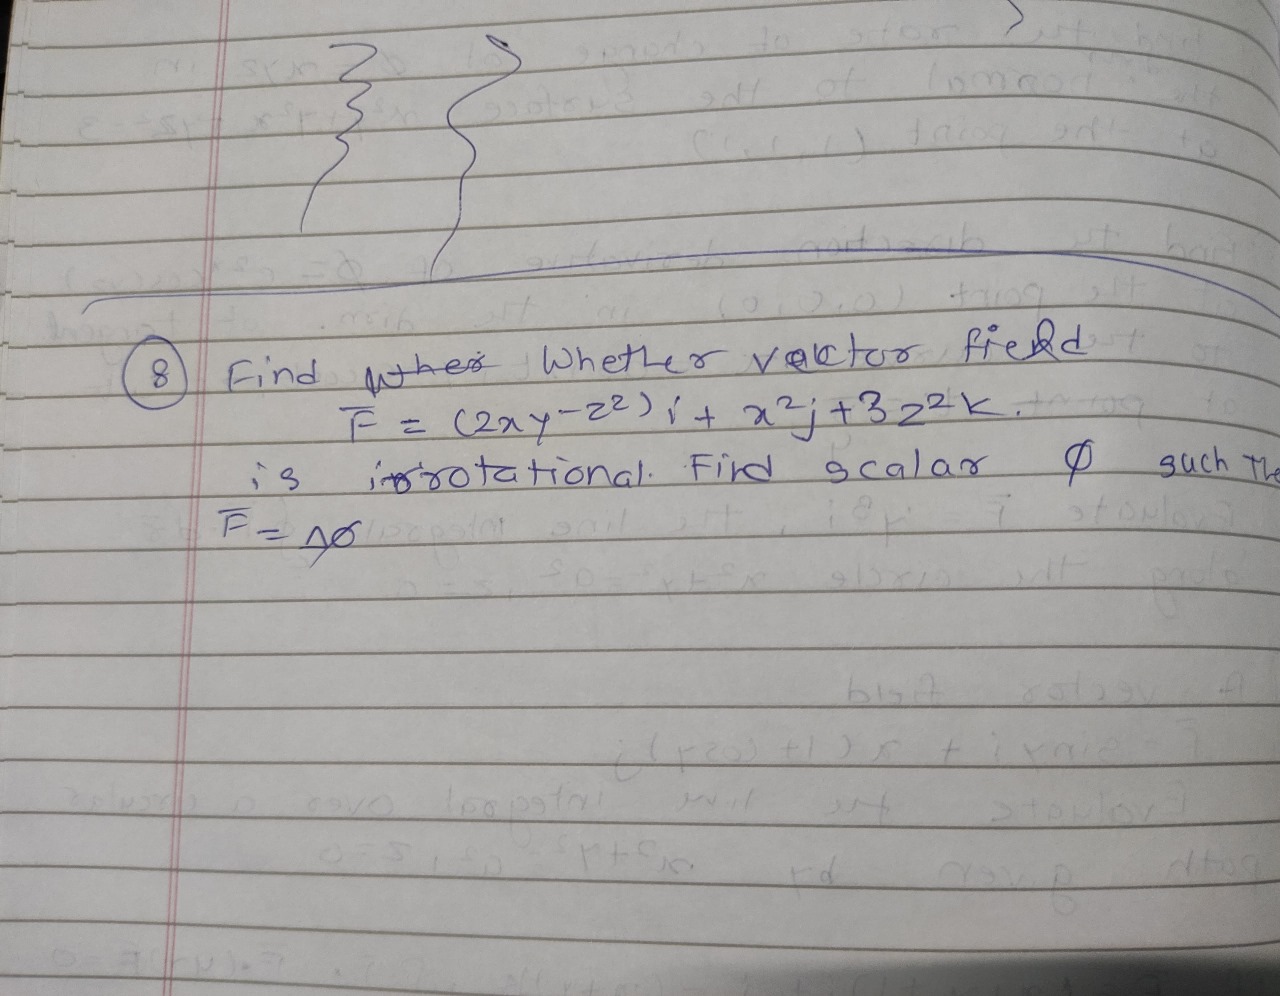 8 Find wther Whether vector field
F̅ = (2xy-z²) i + x²j + 3z²k.
is irrotational. Find scalar ϕ such the
F̅ = △ϕ